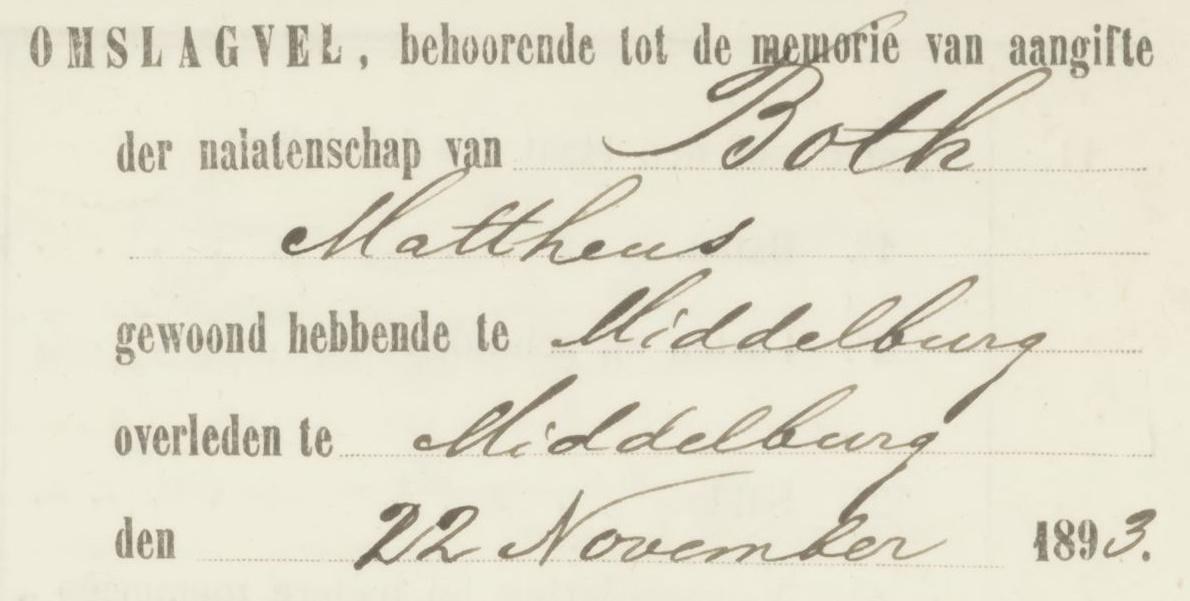 OMSLAGVEL, behoorende tot de memorie van aangifte
der nalatenschap van Both
Mattheus
gewoond hebbende te Middelburg
overleden te Middelburg
den 22 November 1893.